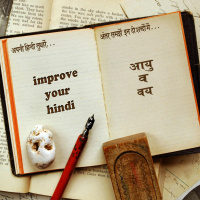 अपनी हिन्दी सुधारें...
improve
your
hindi
अंतर समझें इन दो शब्दों में...
आयु
व
वय